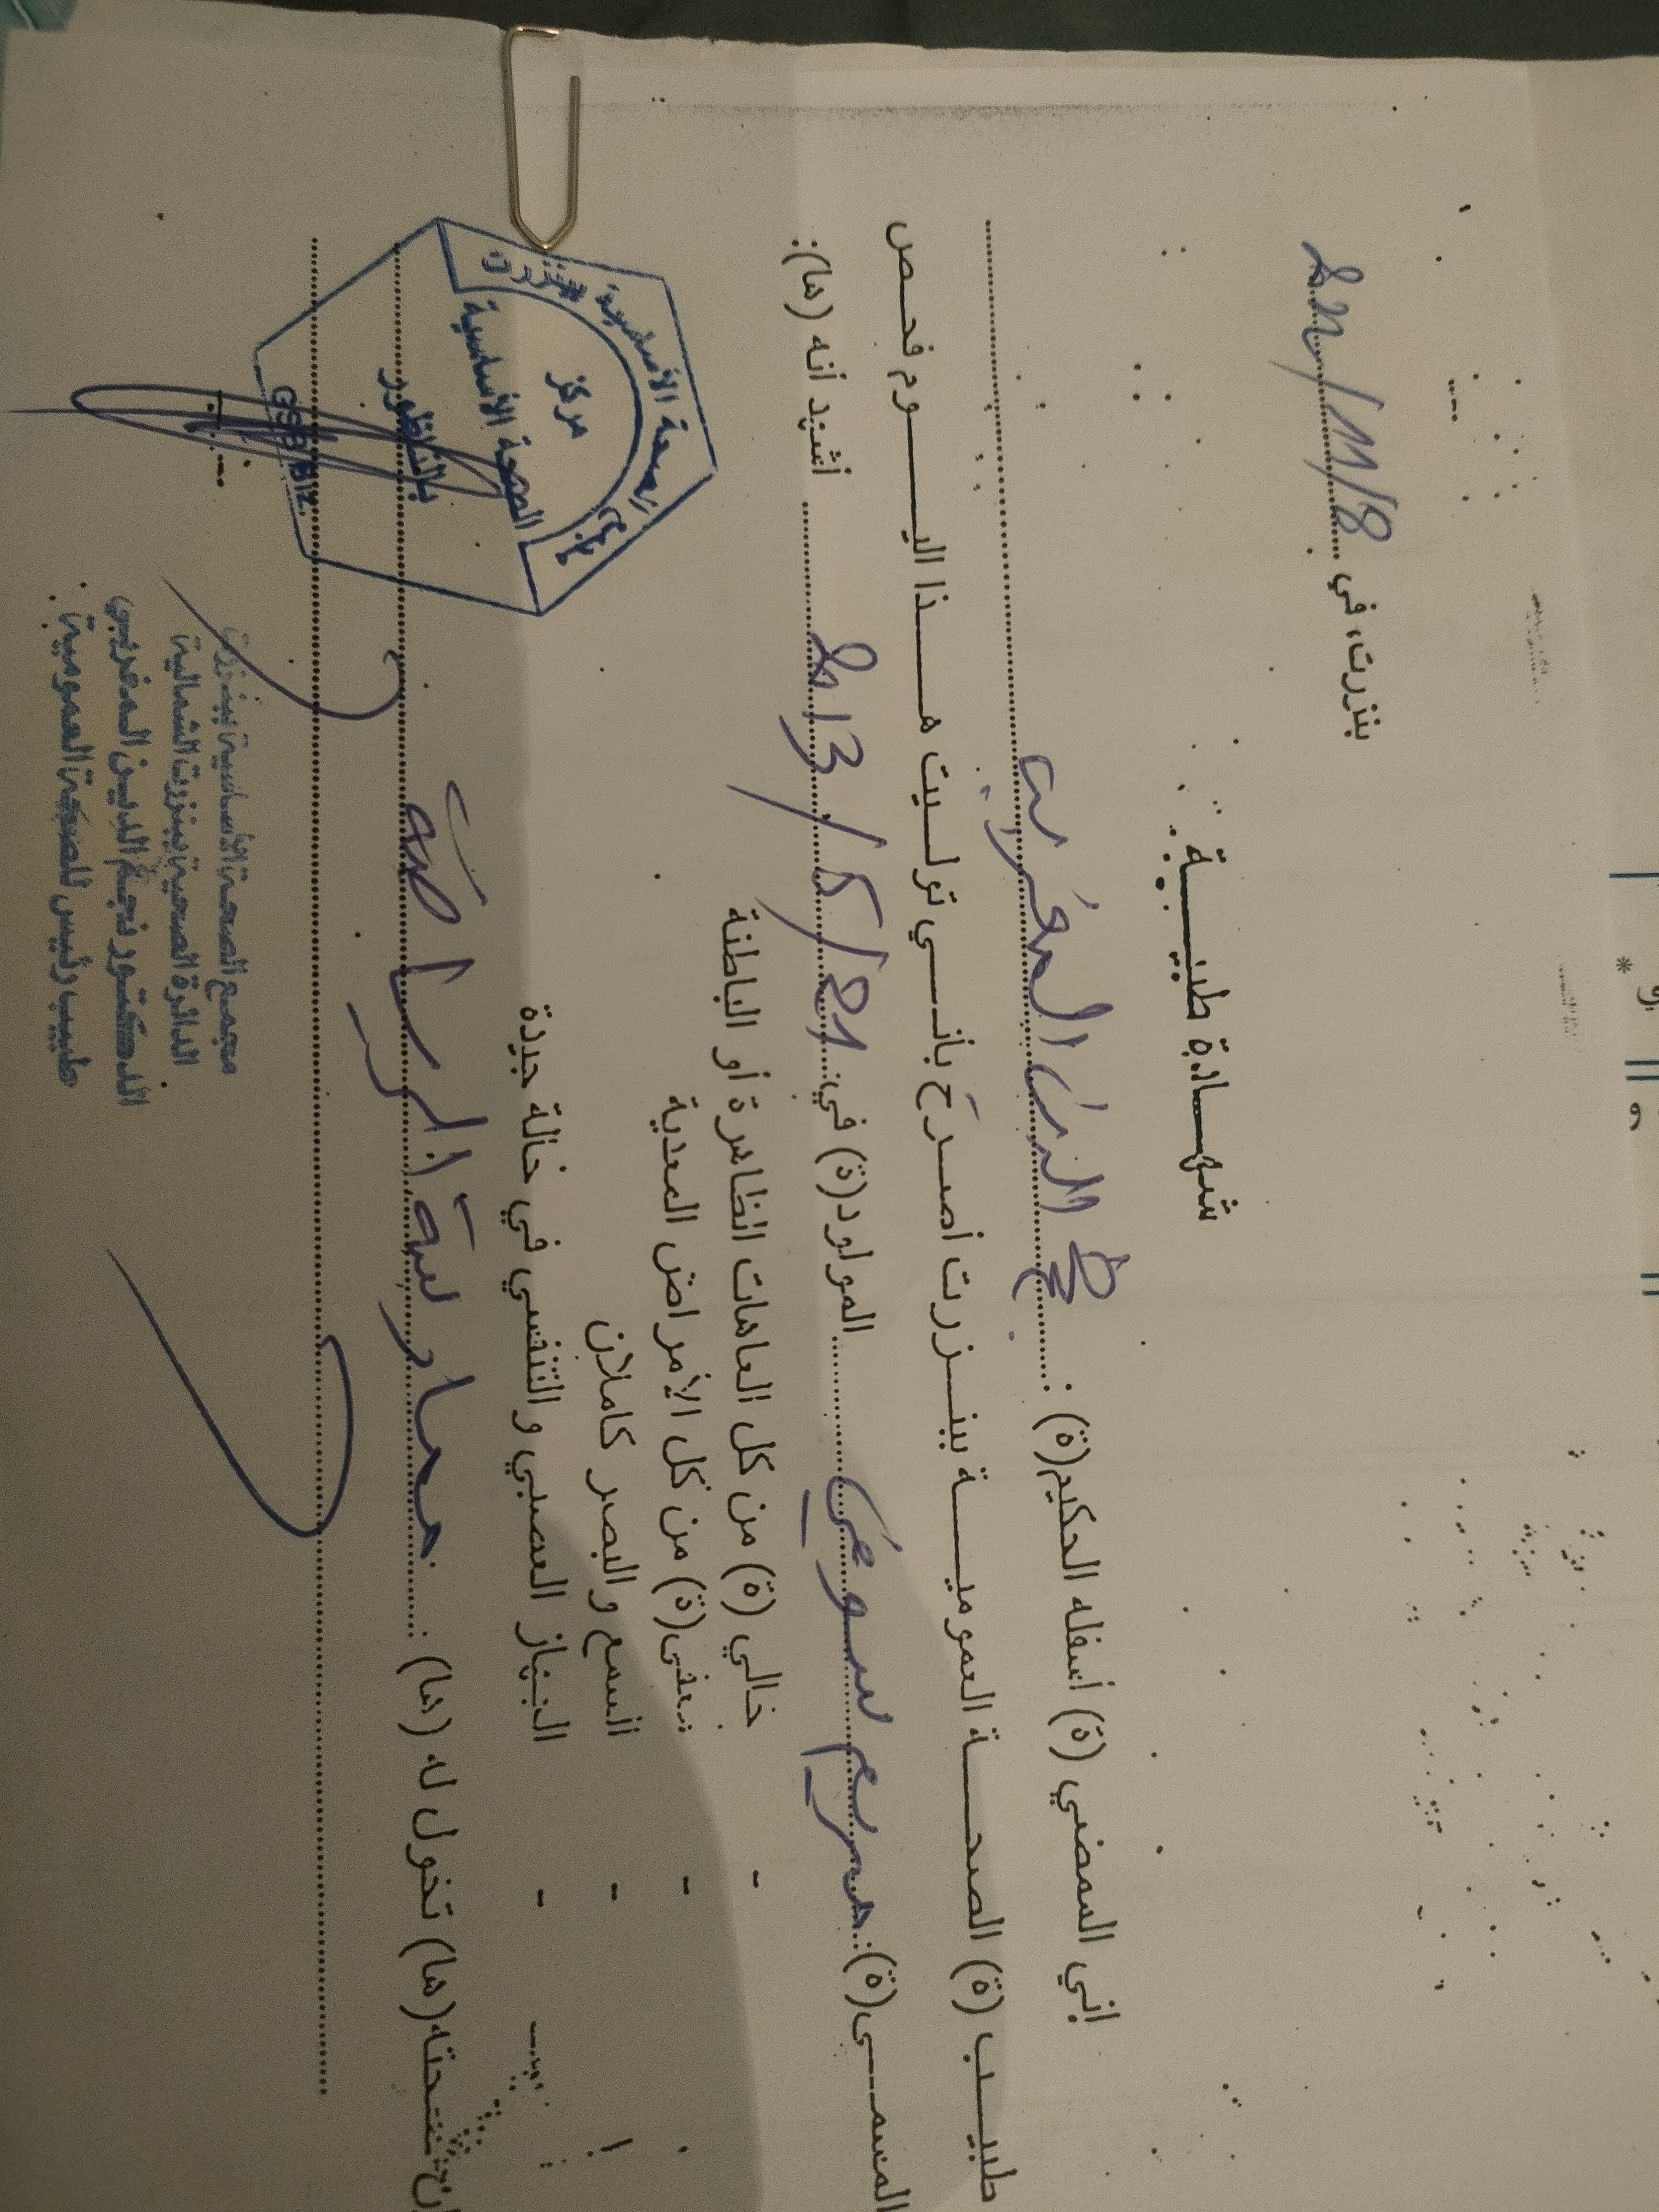 بنزرت، في 8/11/22
شهادة طبية
إني الممضي (ة) أسفله الحكيم(ة) : نجم الدين المغربي
طبيب (ة) الصحة العمومية ببنزرت أصرح بأني توليت هذا اليوم فحص
المسمى(ة): مريم المولود(ة) في: 21/5/2013 أشهد أنه (ها):
- خالي (ة) من كل العاهات الظاهرة أو الباطنة
- معفى(ة) من كل الأمراض المعدية
- السمع والبصر كاملان
- الجهاز العصبي والنفسي في حالة جيدة
صحته(ها) تخول له (ها) : ممارسة الرياضة
مجمع الصحة الأساسية ببنزرت
مركز
الصحة الأساسية
بالناظور
GSB/BIZ
مجمع الصحة الأساسية ببنزرت
الدائرة الصحية ببنزرت الشمالية
الدكتور نجم الدين المغربي
طبيب رئيس للصحة العمومية